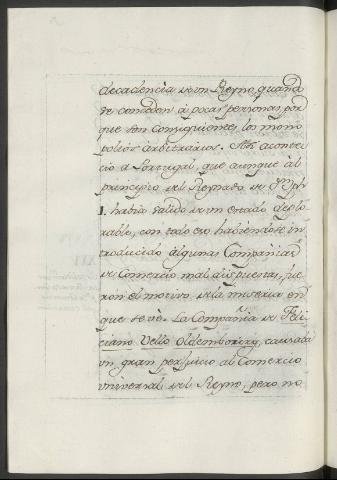 decadencia de un Reyno, quando
se conceden à pocas personas, por
que son consiguientes los mono
polios arbitrarios. Asi aconte
ciò a Portugal, que aunque àl
principio del Reynado de Jph
I. habia salido de un estado deplo
rable, con todo eso habiendose in
troducido algunas Compañias
de Comercio mal dispuestas, fue
ron el motivo de la miseria en
que se vè. La Compañia de Feli
ciano Vello Oldemborirg, causaba
un gran perjuicio al Comercio
universal del Reyno, pero no